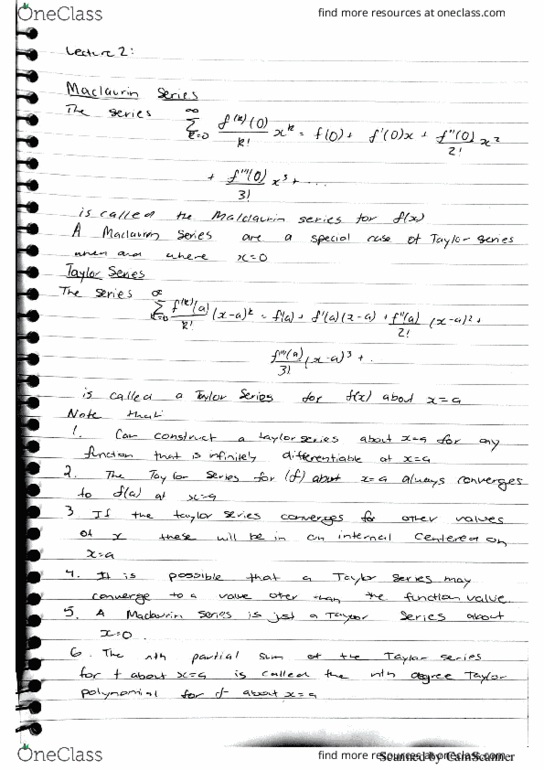 OneClass
find more resources at oneclass.com
Lecture 2:
Maclaurin Series
The series ∞ Σ k=0 f^(k)(0)/k! x^k = f(0) + f'(0)x + f''(0)/2! x²
+ f'''(0)/3! x³ + ...
is called the Malclaurin series for f(x)
A Maclaurin Series are a special case of Taylor series
when and where x=0
Taylor Series
The series ∞ Σ k=0 f^(k)(a)/k! (x-a)^k = f(a) + f'(a)(x-a) + f''(a)/2! (x-a)² +
f'''(a)/3! (x-a)³ + ..
is called a Taylor Series for f(x) about x=a
Note that:
1. Can construct a taylor series about x=a for any
function that is infinitely differentiable at x=a
2. The Taylor Series for (f) about x=a always converges
to f(a) at x=a
3 If the taylor series converges for other values
of x these will be in an internal centered on
x=a
4. It is possible that a Taylor series may
converge to a value other than the function value.
5. A Maclaurin series is just a Taylor Series about
x=0.
6. The nth partial sum of the Taylor series
for f about x=a is called the nth degree Taylor
polynomial for f about x=a
OneClass
find more resources at oneclass.com
Scanned by CamScanner